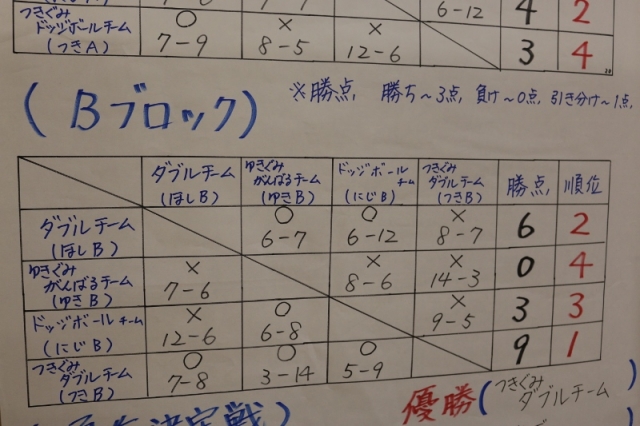 6-12 4 2
つきぐみ
ドッジボールチーム
(つきA)
○ × ×
7-9 8-5 12-6 3 4
(Bブロック)
※勝点、勝ち~3点、負け~0点、引き分け~1点、
ダブルチーム
(ほしB)
ゆきぐみ
がんばるチーム
(ゆきB)
ドッジボール
チーム
(にじB)
つきぐみ
ダブルチーム
(つきB)
勝点 順位
ダブルチーム
(ほしB)
○ ○ ×
6-7 6-12 8-7 6 2
ゆきぐみ
がんばるチーム
(ゆきB)
× × ×
7-6 8-6 14-3 0 4
ドッジボールチーム
(にじB)
× ○ ×
12-6 6-8 9-5 3 3
つきぐみ
ダブルチーム
(つきB)
○ ○ ○
7-8 3-14 5-9 9 1
決定戦)
優勝(つきぐみ
ダブルチーム)